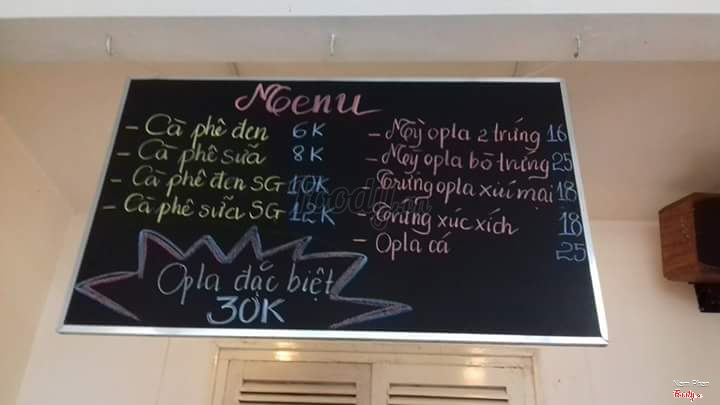 Menu
- Cà phê đen 6K
- Cà phê sữa 8K
- Cà phê đen SG 10K
- Cà phê sữa SG 12K
Opla đặc biệt
30K
- Mỳ opla 2 trứng 16
- Mỳ opla bò trứng 25
- Trứng opla xíu mại 18
- Trứng xúc xích 18
- Opla cá 25
Foody.vn
Nam Phan
Foody.vn